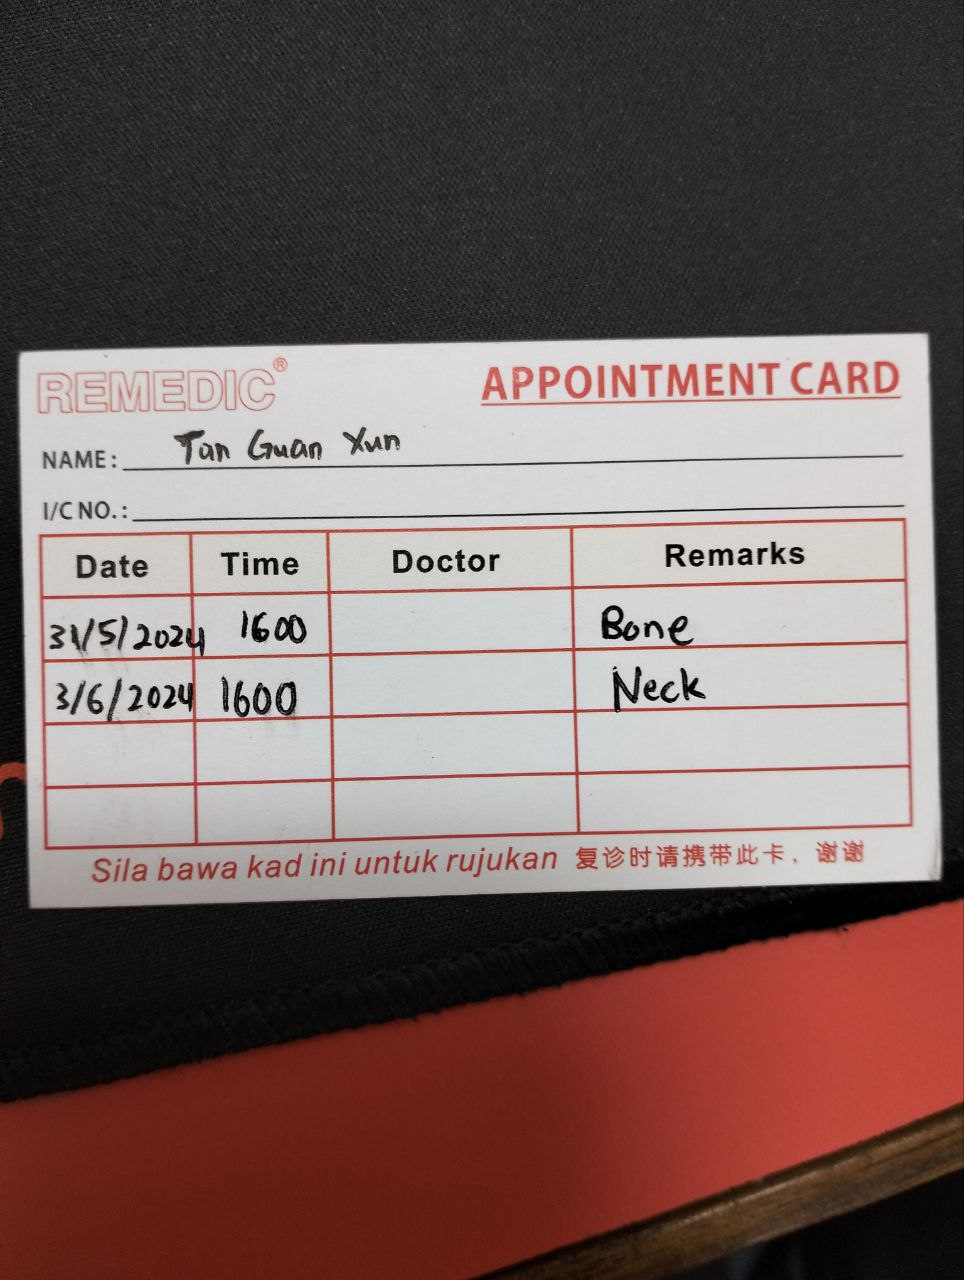 REMEDIC® APPOINTMENT CARD
NAME: Tan Guan Xun
I/C NO.:
Date Time Doctor Remarks
31/5/2024 1600 Bone
3/6/2024 1600 Neck
Sila bawa kad ini untuk rujukan 复诊时请携带此卡．谢谢